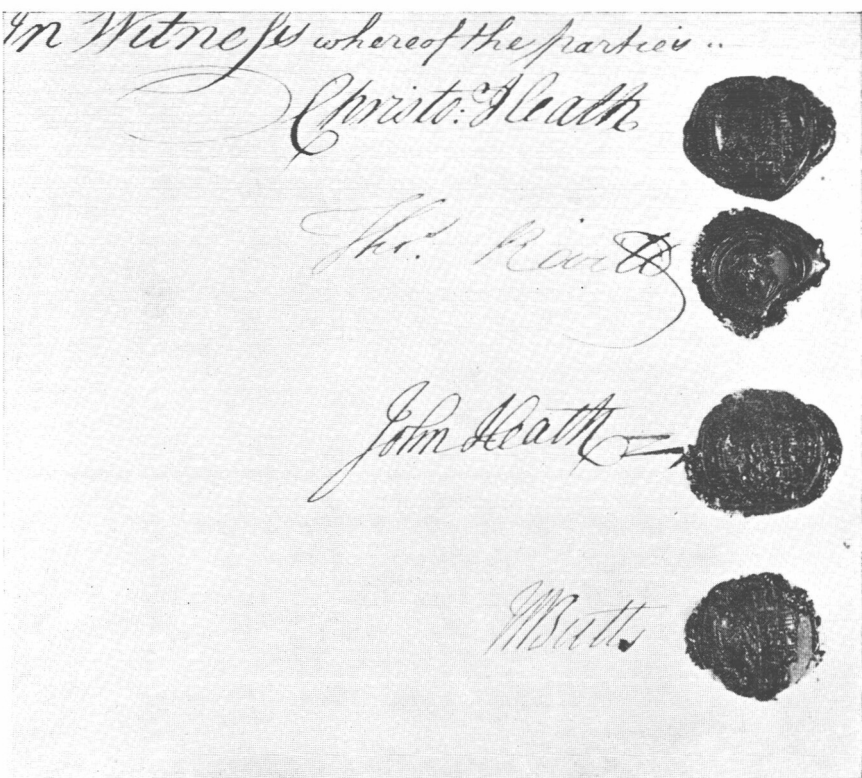 In Witness whereof the parties ..
Christo: Heath
Thos.
John Heath
WButts